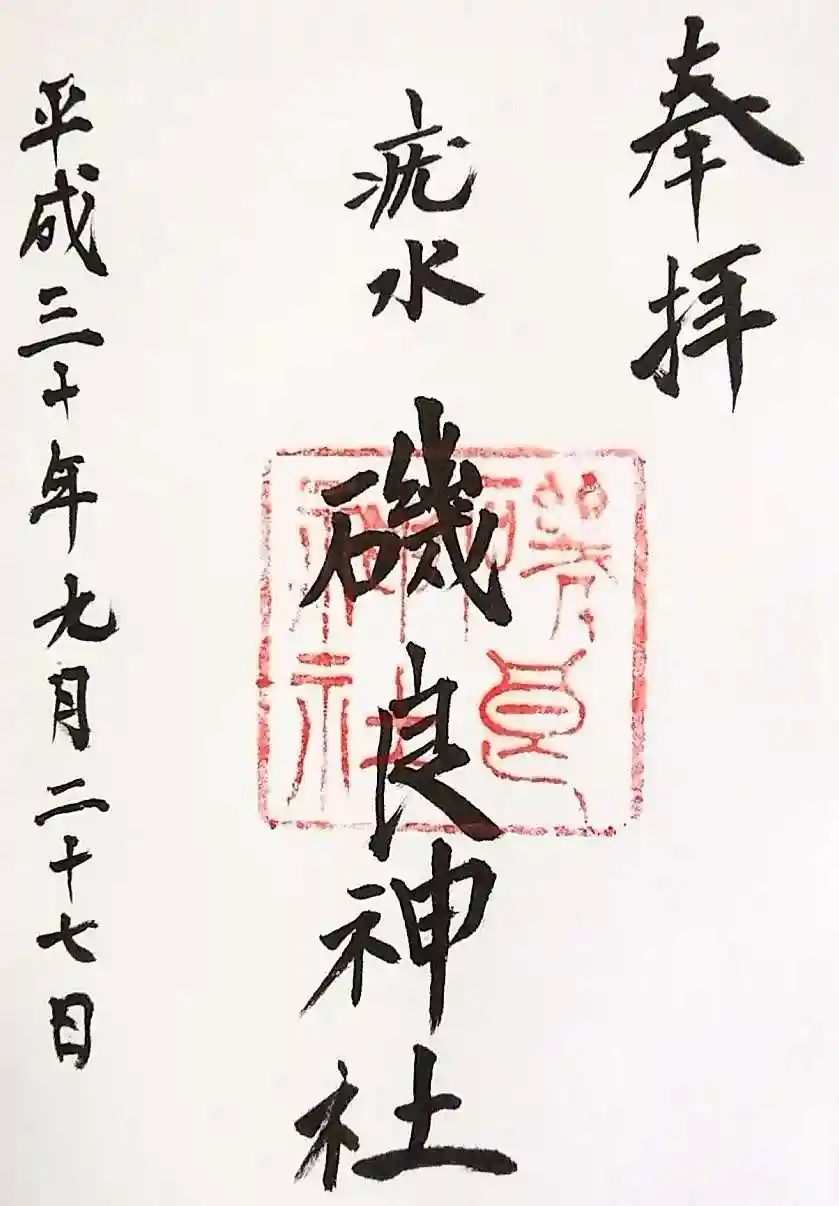 奉拝
疣水 磯良神社
磯良神社
平成三十年九月二十七日